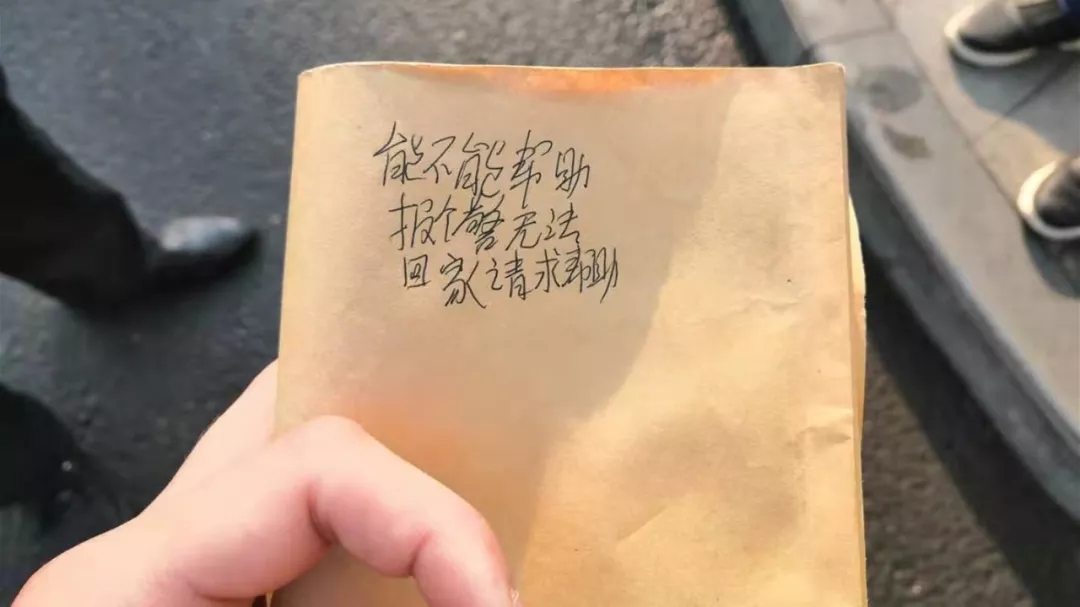 能不能帮助
报个警无法
回家请求帮助